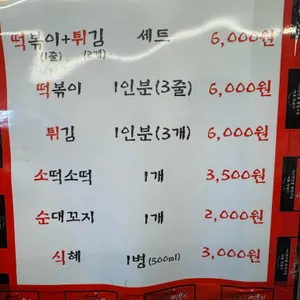 떡볶이+튀김 세트 6,000원
(1줄) (2개)
떡볶이 1인분(3줄) 6,000원
튀김 1인분(3개) 6,000원
소떡소떡 1개 3,500원
순대꼬지 1개 2,000원
식혜 1병(500ml) 3,000원